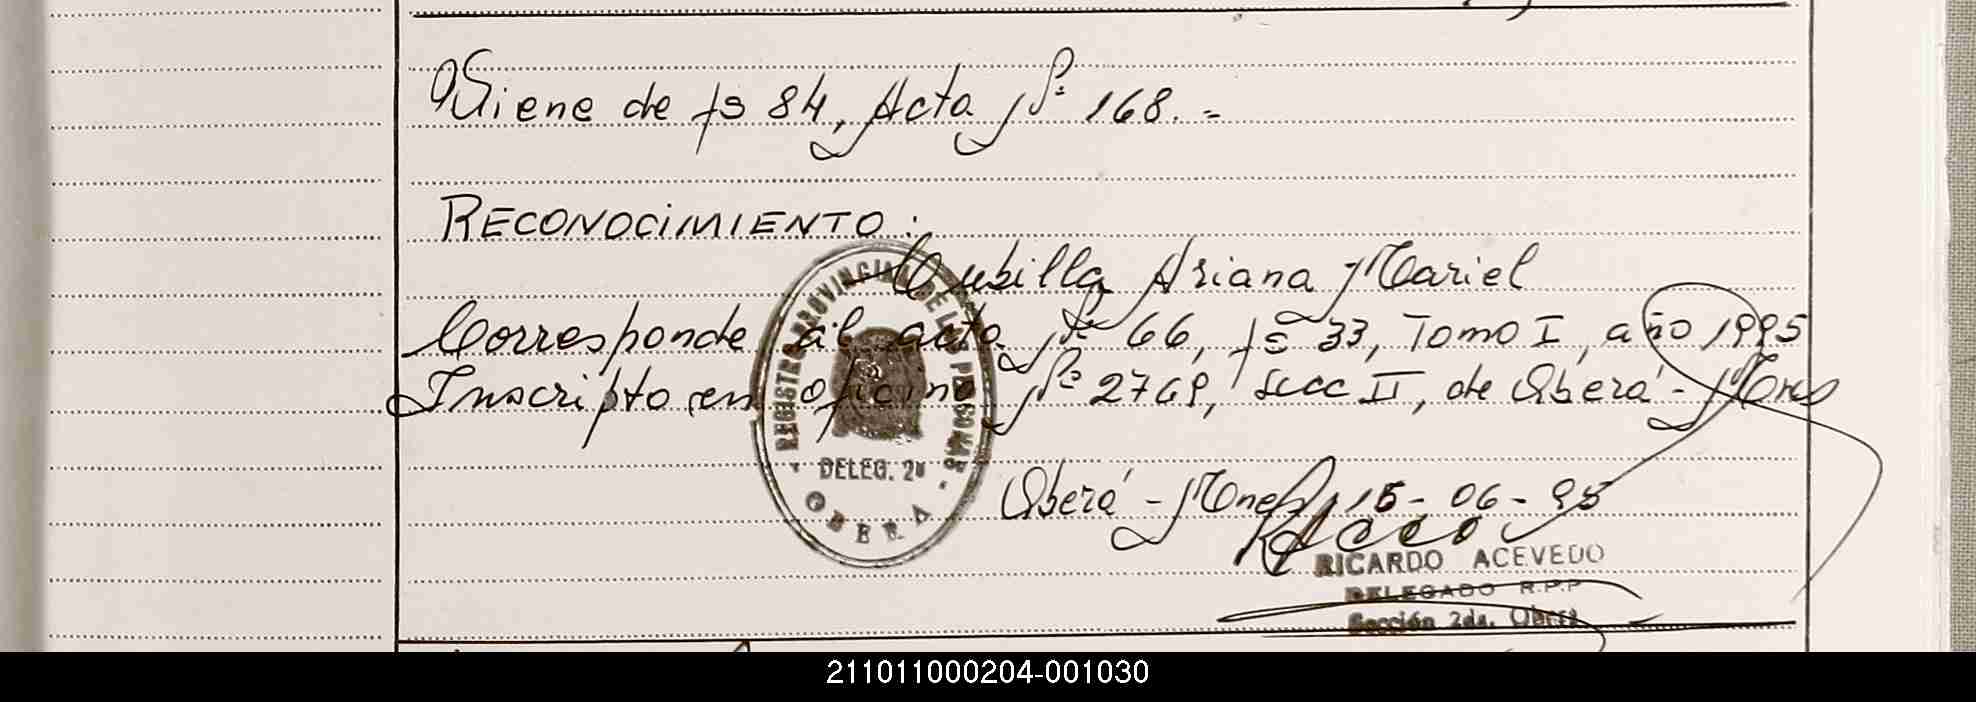 Viene de fs 84, Acta Nº 168. =
RECONOCIMIENTO:
Cubilla Ariana Mariel
Corresponde al acta Nº 66, fs 33, Tomo I, año 1995
Inscripto en oficina Nº 2769, Secc II, de Oberá - Mnes
REGISTRO PROVINCIAL DE LAS PERSONAS
DELEG. 2ª
OBERA
Oberá - Mnes, 15 - 06 - 95
RICARDO ACEVEDO
DELEGADO R.P.P
Sección 2da. Oberá
211011000204-001030